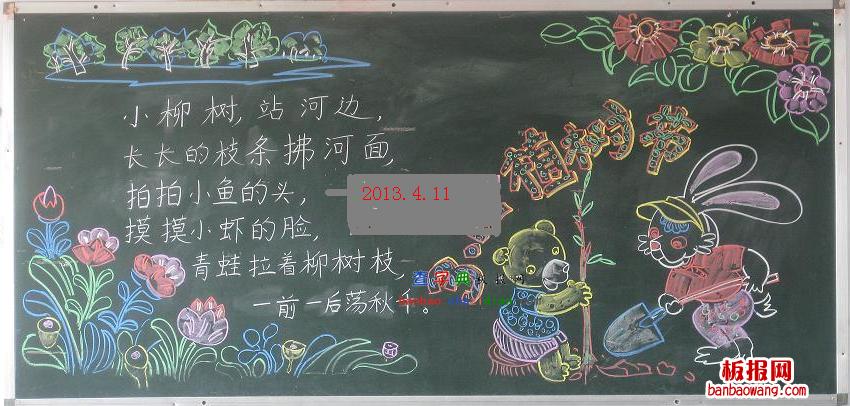 小柳树,站河边,
长长的枝条拂河面,
拍拍小鱼的头,
摸摸小虾的脸,
青蛙拉着柳树枝,
一前一后荡秋千。
植树节
2013.4.11
查字典
板报网
banbaowang.com